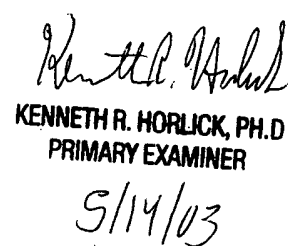 Kenneth R. Horlick
KENNETH R. HORLICK, PH.D
PRIMARY EXAMINER
5/14/03